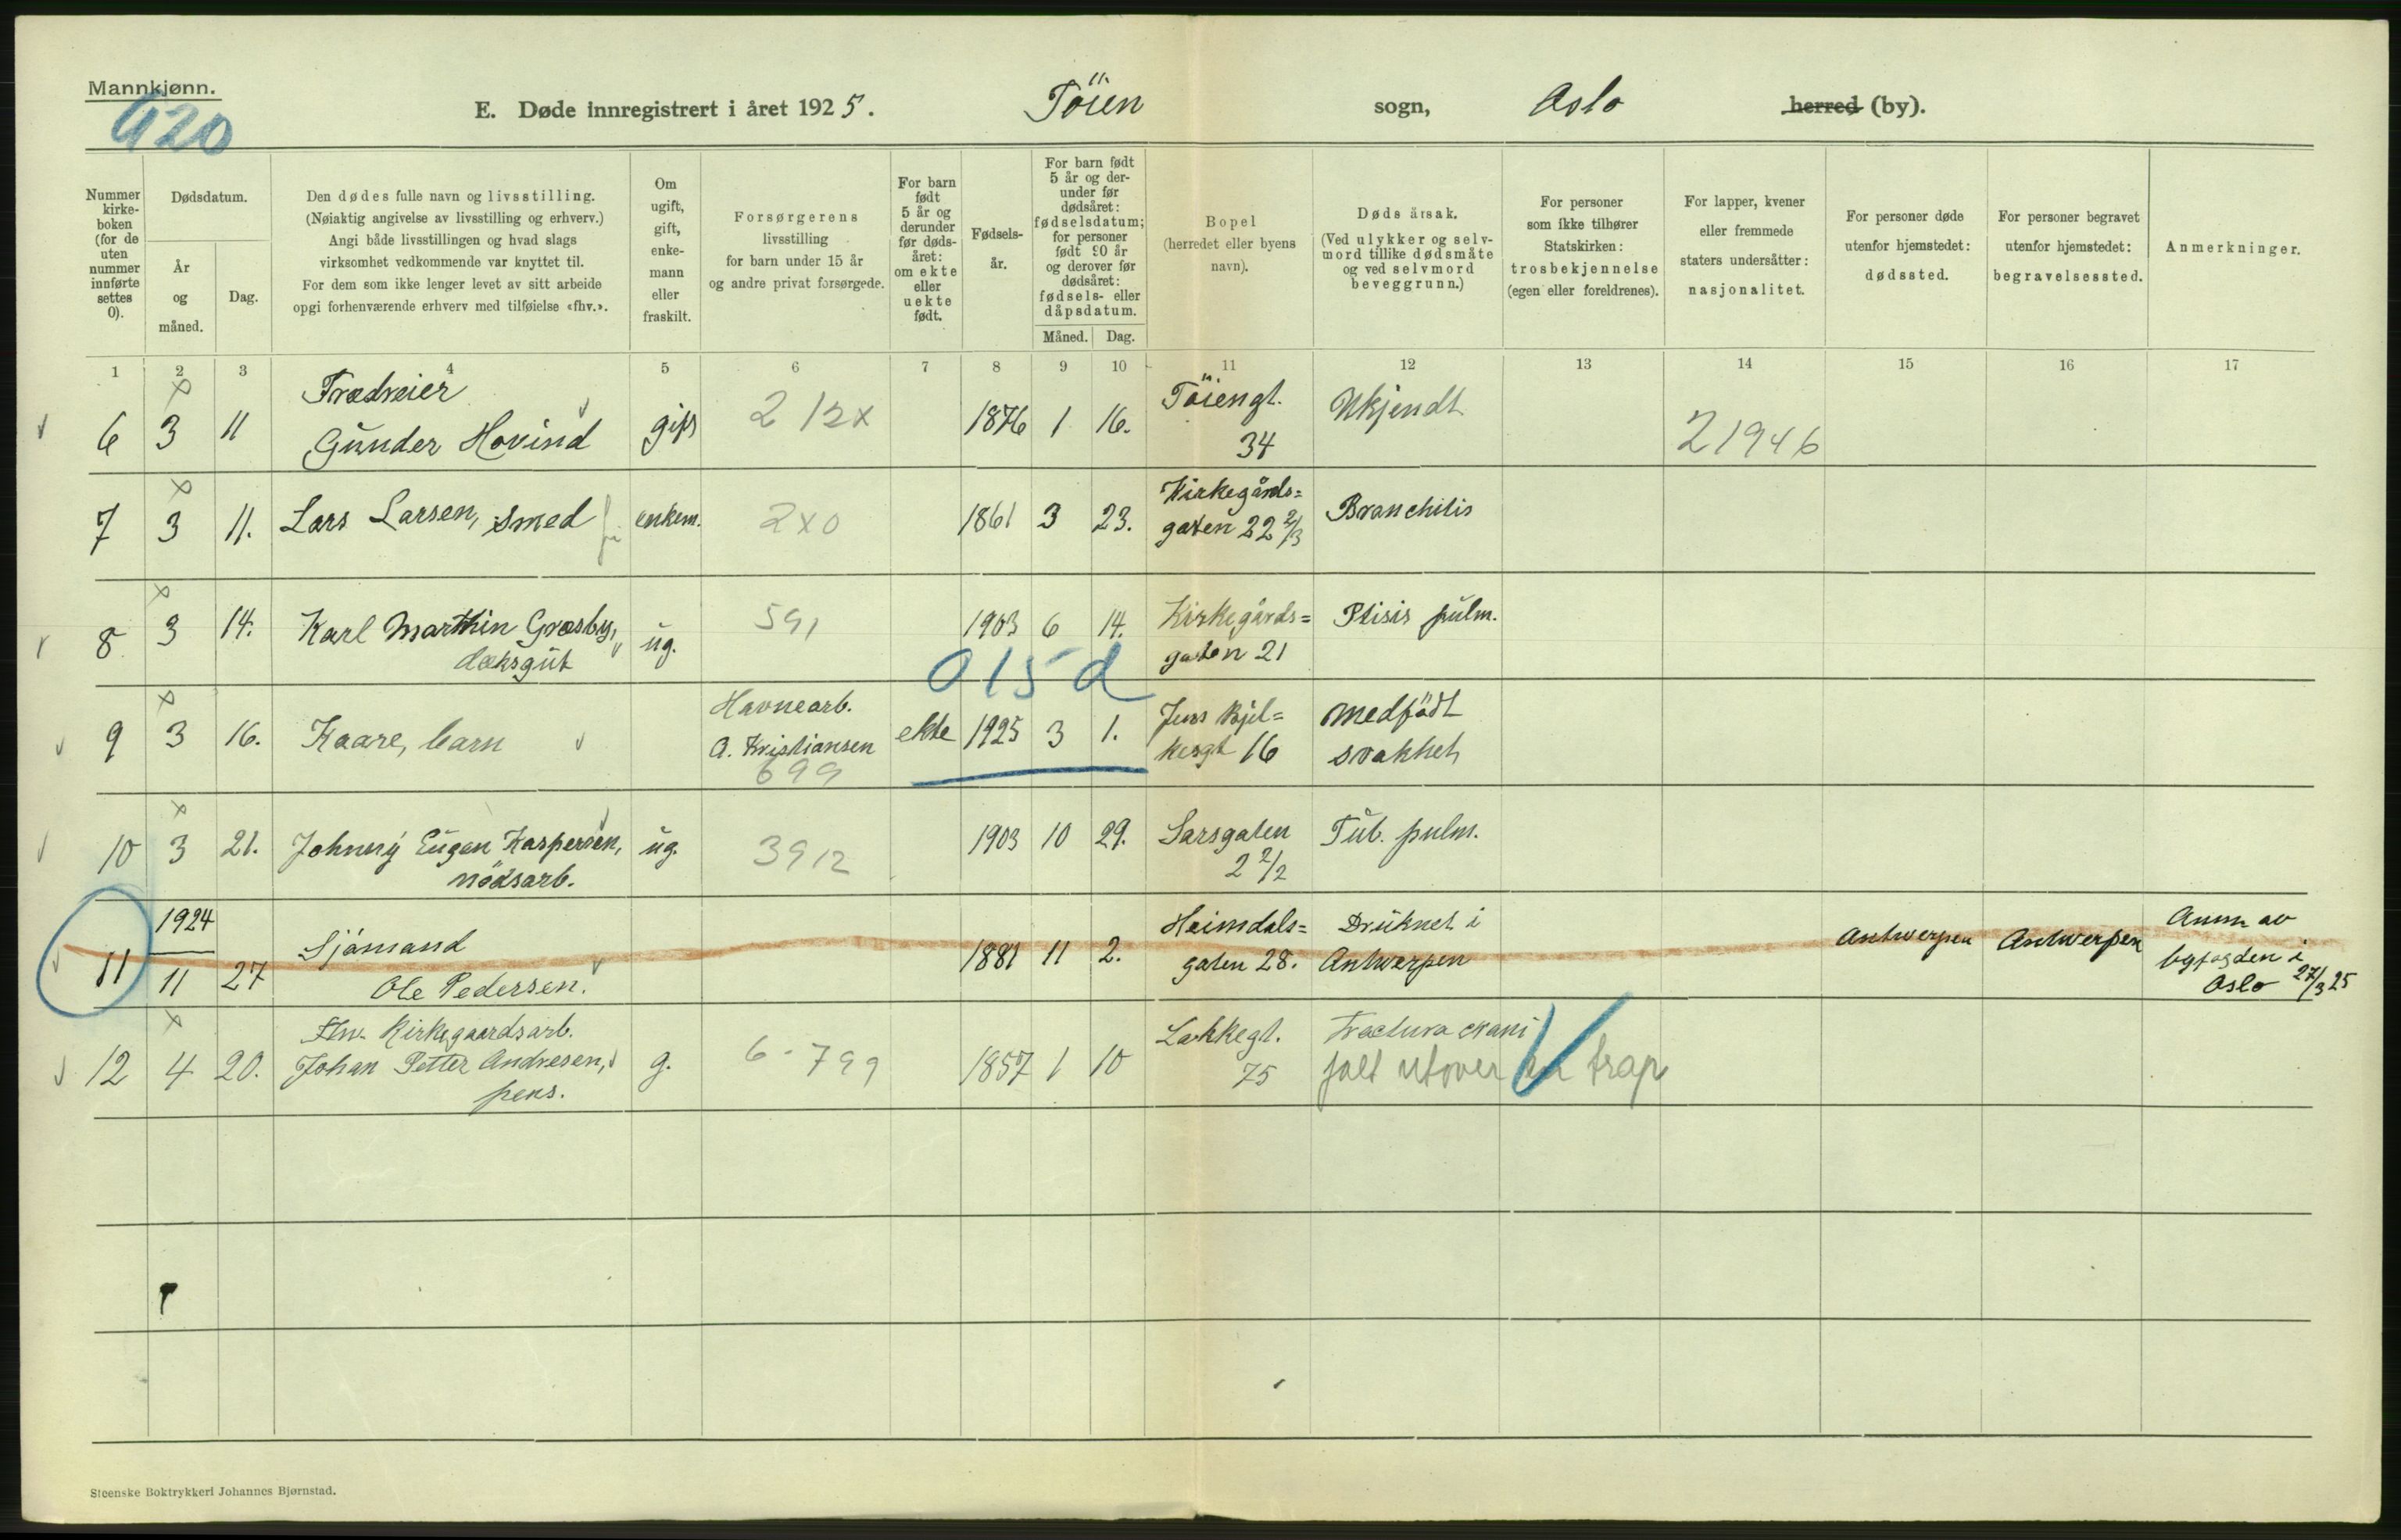 Mannkjønn.
920
E. Døde innregistrert i året 1925. Töien sogn, Oslo herred (by).
Nummer kirke-boken (for de uten nummer innførte settes 0).
Dødsdatum.
År og måned.
Dag.
Den dødes fulle navn og livsstilling.
(Nøiaktig angivelse av livsstilling og erhverv.)
Angi både livsstillingen og hvad slags
virksomhet vedkommende var knyttet til.
For dem som ikke lenger levet av sitt arbeide
opgi forhenværende erhverv med tilføielse «fhv.».
Om ugift, gift, enke-mann eller fraskilt.
Forsørgerens
livsstilling
for barn under 15 år
og andre privat forsørgede.
For barn født 5 år og derunder før døds-året: om ekte eller uekte født.
Fødsels-år.
For barn født 5 år og der-under før dødsåret: fødselsdatum; for personer født 90 år og derover før dødsåret: fødsels- eller dåpsdatum.
Måned. Dag.
Bopel
(herredet eller byens
navn).
Dødsårsak.
(Ved ulykker og selv-
mord tillike dødsmåte
og ved selvmord
beveggrunn.)
For personer
som ikke tilhører
Statskirken:
trosbekjennelse
(egen eller foreldrenes).
For lapper, kvener
eller fremmede
staters undersåtter:
nasjonalitet.
For personer døde
utenfor hjemstedet:
dødssted.
For personer begravet
utenfor hjemstedet:
begravelsessted.
Anmerkninger.
1 2 3 4 5 6 7 8 9 10 11 12 13 14 15 16 17
6 3 11 Trædreier
Gunder Hovind gift 212x 1876 1 16. Töiengt.
34 Ukjendt 21946
7 3 11. Lars Larsen, smed enkem. 2x0 1861 3 23. Kirkegårds=
gaten 22 2/3 Bronchitis
8 3 14. Karl Marthin Græsby,
dæksgut ug. 591 1903 6 14. Kirkegårds=
gaten 21 Ptisis pulm.
015 d
9 3 16. Kaare, barn Havnearb.
A. Kristiansen
699 ekte 1925 3 1. Jens Bjel=
kesgt 16 Medfödt
svakhet
10 3 21. Johnny Eugen Kaspersen,
nödsarb. ug. 3912 1903 10 29. Sarsgaten
2 2/2 Tub. pulm.
11 1924
11 27 Sjömand
Ole Pedersen. 1881 11 2. Heimdals=
gaten 28. Druknet i
Antwerpen Antwerpen Antwerpen Anm av
byfogden i
Oslo 27/3 25
12 4 20. Fhv. Kirkegaardsarb.
Johan Petter Andresen,
pens. g. 6-799 1857 1 10 Lakkegt.
75 Fractura crani
falt utover en trap
Steenske Boktrykkeri Johannes Bjørnstad.